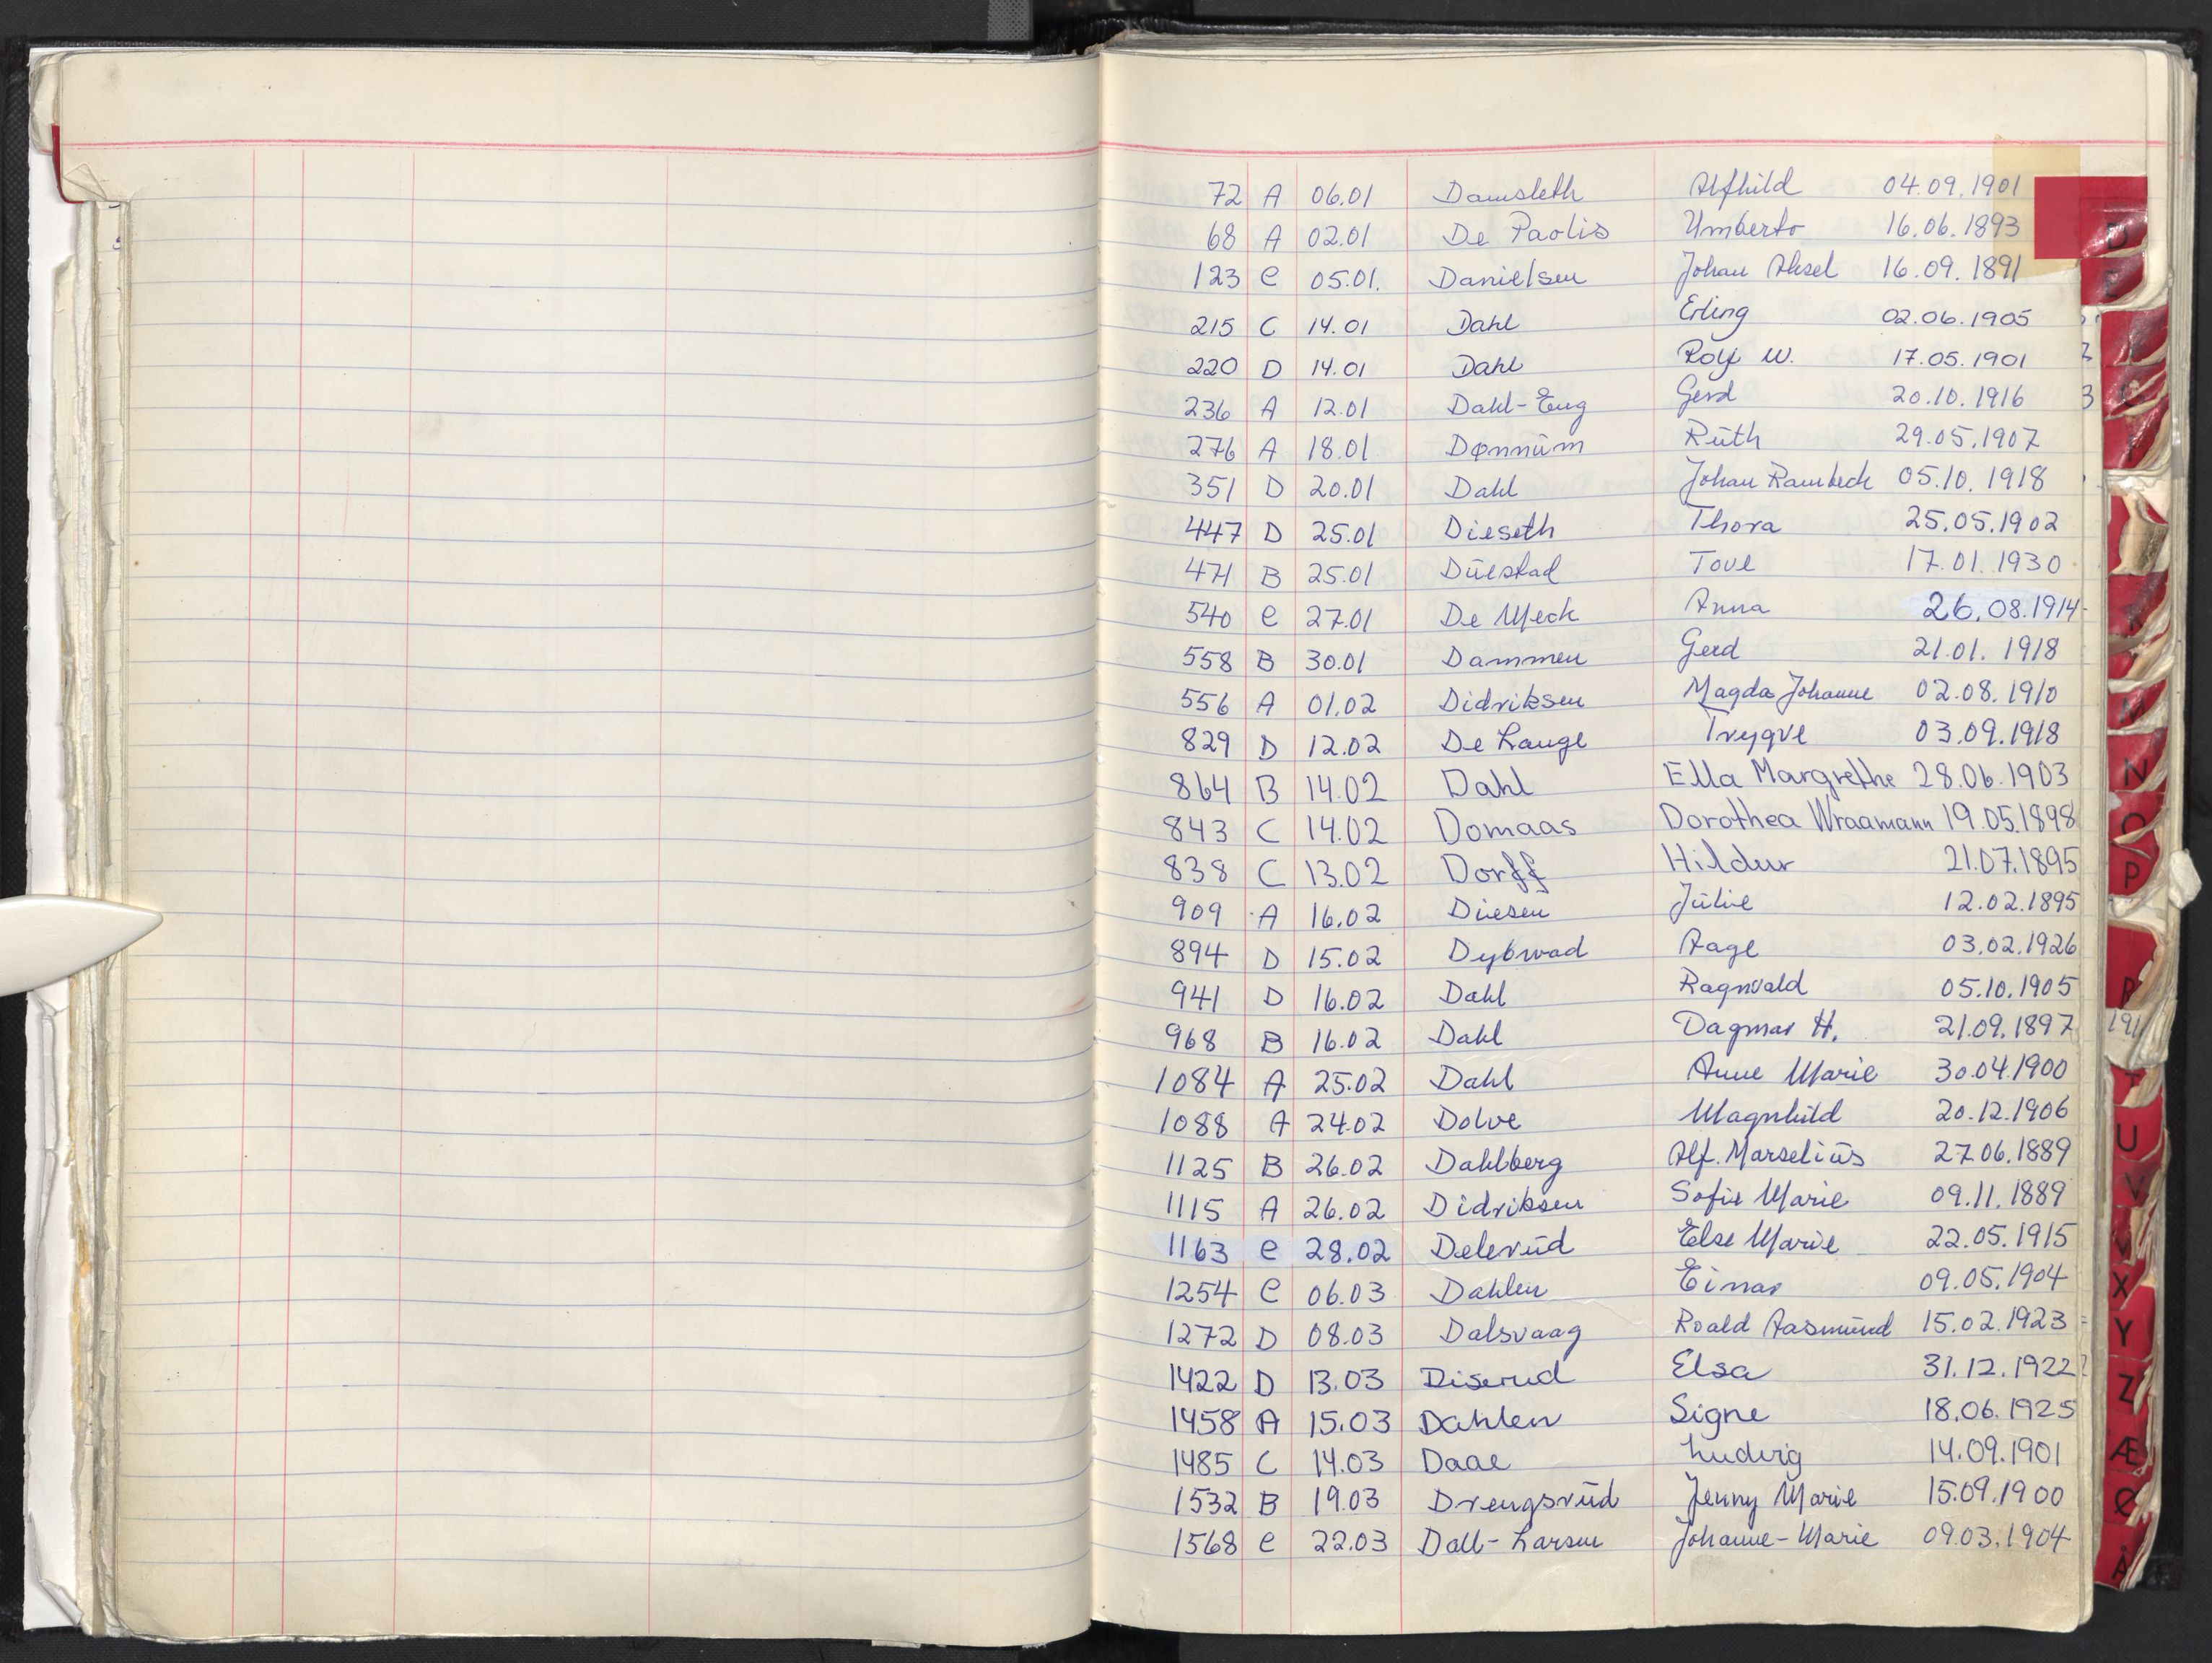 72 A 06.01 Damsleth Alfhild 04.09.1901
68 A 02.01 De Paolis Umberto 16.06.1893
123 C 05.01. Danielsen Johan Aksel 16.09.1891
215 C 14.01 Dahl Erling 02.06.1905
220 D 14.01 Dahl Rolf W. 17.05.1901
236 A 12.01 Dahl-Eng Gerd 20.10.1916
276 A 18.01 Dønnum Ruth 29.05.1907
351 D 20.01 Dahl Johan Rambech 05.10.1918
447 D 25.01 Dieseth Thora 25.05.1902
471 B 25.01 Duestad Tove 17.01.1930
540 C 27.01 De Meck Anna 26.08.1914
558 B 30.01 Dammen Gerd 21.01.1918
556 A 01.02 Didriksen Magda Johanne 02.08.1910
829 D 12.02 De Lange Trygve 03.09.1918
864 B 14.02 Dahl Ella Margrethe 28.06.1903
843 C 14.02 Domaas Dorothea Wraamann 19.05.1898
838 C 13.02 Dorff Hildur 21.07.1895
909 A 16.02 Diesen Julie 12.02.1895
894 D 15.02 Dybwad Aage 03.02.1926
941 D 16.02 Dahl Ragnvald 05.10.1905
968 B 16.02 Dahl Dagmar H. 21.09.1897
1084 A 25.02 Dahl Anne Marie 30.04.1900
1088 A 24.02 Dolve Magnhild 20.12.1906
1125 B 26.02 Dahlberg Alf. Marselius 27.06.1889
1115 A 26.02 Didriksen Sofie Marie 09.11.1889
1163 C 28.02 Delerud Else Marie 22.05.1915
1254 C 06.03 Dahlen Einar 09.05.1904
1272 D 08.03 Dalsvaag Roald Aasmund 15.02.1923
1422 D 13.03 Diserud Elsa 31.12.1922
1458 A 15.03 Dahlen Signe 18.06.1925
1485 C 14.03 Daae Ludvig 14.09.1901
1532 B 19.03 Drengsrud Jenny Marie 15.09.1900
1568 C 22.03 Dall-Larsen Johanne-Marie 09.03.1904
D
N
O
P
R
U
V
X
Y
Z
Æ
Ø
Å